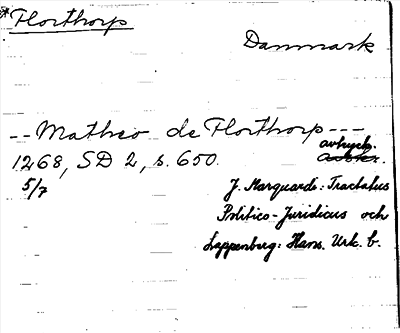 *Florthorp
Danmark
-- Matheo de Florthorp ---
1268, SD 2, s. 650. avtryck.
5/7 J. Marquards: Tractatus
Politico-Juridicus och
Lappenberg: Hans. Urk. b.